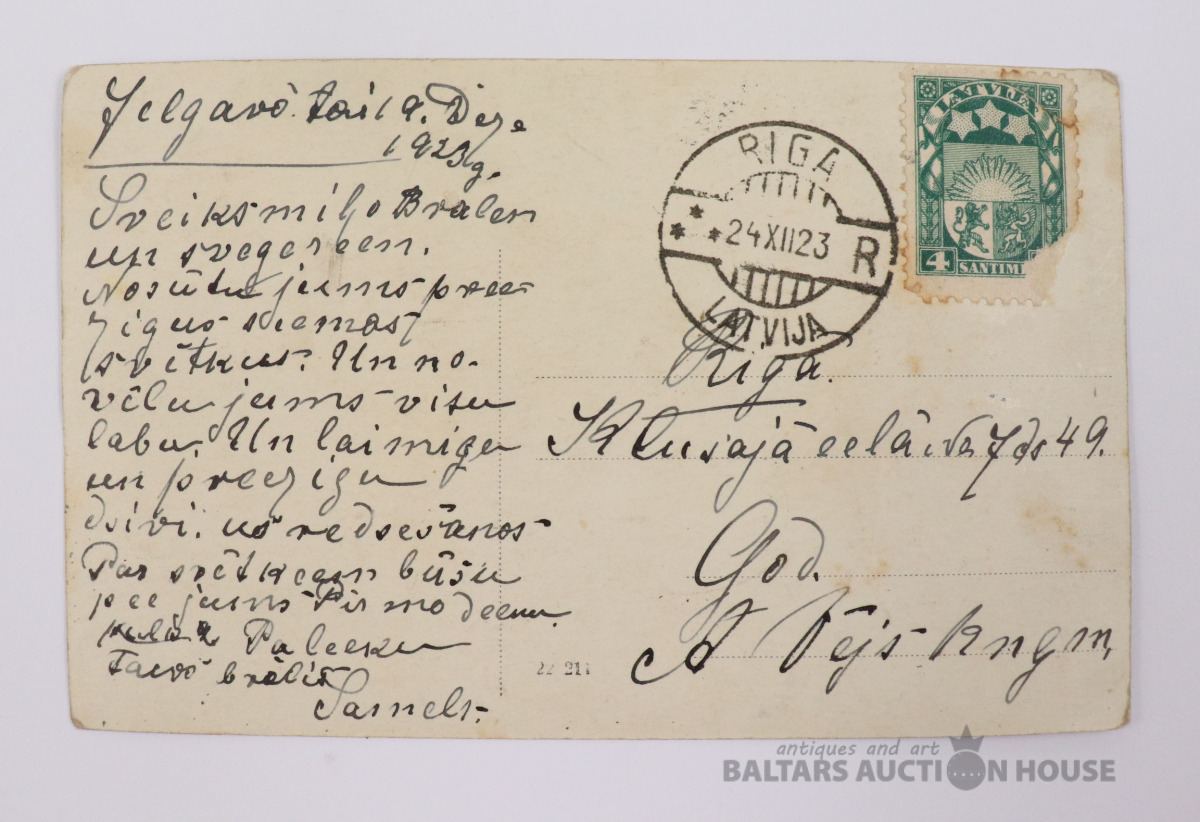 Jelgavō tai 19. Deze
1923 g.
Sveiks miļo Brālen
un svegereen.
Nosūtu jums pree-
zigus seemas
svētkus. Un no-
vēlu jums visu
labu. Un laimigu
un preezigu
dsivi. us redsešanos
Par svētkeem būšu
pee jums Pirmo deenu
Paleeku
Tawš brālis
Samels.
RIGA
24XII23
R
LATVIJA
LATVIJA
4 SANTIMI
Rīgā.
Klusajā eelā № 7 ds 49.
God.
A Vējš kngm,
22 211
antiques and art
BALTARS AUCTION HOUSE